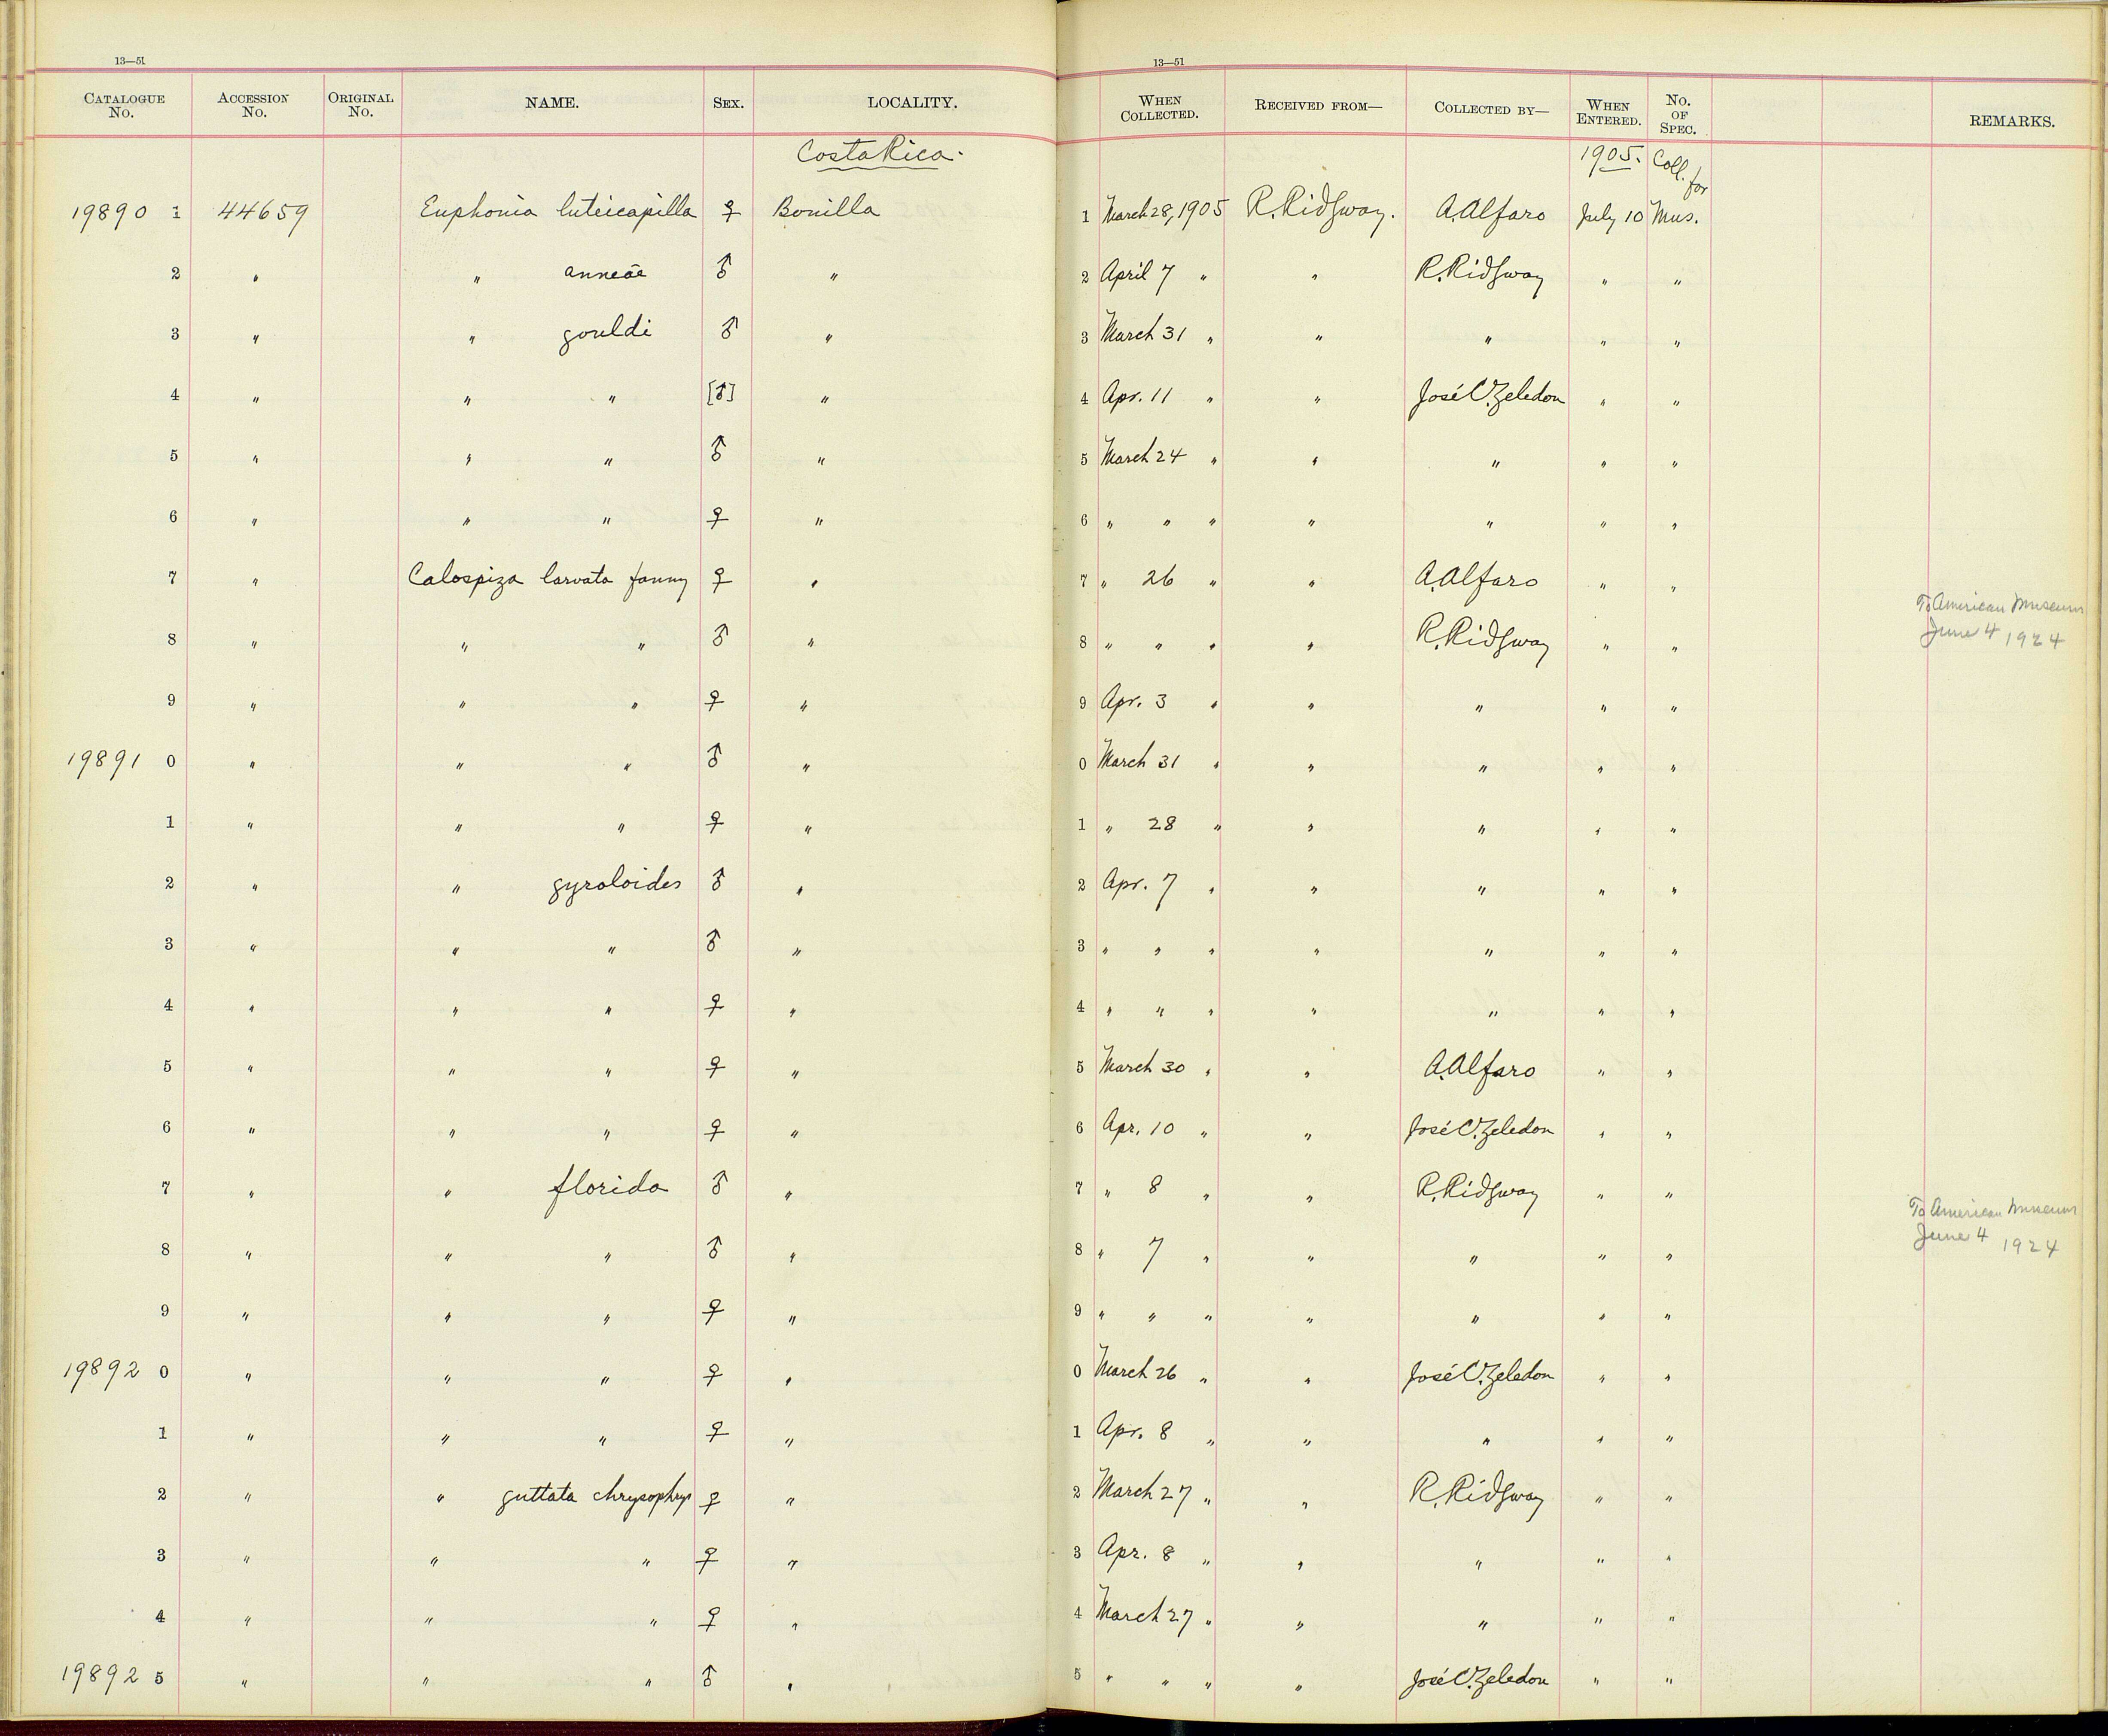 13—51
CATALOGUE No. ACCESSION No. ORIGINAL No. NAME. SEX. LOCALITY.
Costa Rica.
19890 1 44659 Euphonia luteicapilla ♀ Bonilla
2 " " anneae ♂ "
3 " " gouldi ♂ "
4 " " " [♂] "
5 " " " ♂ "
6 " " " ♀ "
7 " Calospiza larvata fanny ♀ "
8 " " " ♂ "
9 " " " ♀ "
19891 0 " " " ♂ "
1 " " " ♀ "
2 " " gyroloides ♂ "
3 " " " ♂ "
4 " " " ♀ "
5 " " " ♀ "
6 " " " ♀ "
7 " " florida ♂ "
8 " " " ♂ "
9 " " " ♀ "
19892 0 " " " ♀ "
1 " " " ♀ "
2 " " guttata chrysophrys ♀ "
3 " " " ♀ "
4 " " " ♀ "
19892 5 " " " ♂ "
13—51
WHEN COLLECTED. RECEIVED FROM— COLLECTED BY— WHEN ENTERED. No. OF SPEC. REMARKS.
1905. Coll. for
1 March 28, 1905 R. Ridgway. A. Alfaro July 10 Mus.
2 April 7 " " R. Ridgway " "
3 March 31 " " " " "
4 Apr. 11 " " José C. Zeledon " "
5 March 24 " " " " "
6 " " " " " " "
7 " 26 " " A. Alfaro " "
To American Museum
8 " " " " R. Ridgway " " June 4 1924
9 Apr. 3 " " " " "
0 March 31 " " " " "
1 " 28 " " " " "
2 Apr. 7 " " " " "
3 " " " " " " "
4 " " " " " " "
5 March 30 " " A. Alfaro " "
6 Apr. 10 " " José C. Zeledon " "
7 " 8 " " R. Ridgway " " To American Museum
June 4 1924
8 " 7 " " " " "
9 " " " " " " "
0 March 26 " " José C. Zeledon " "
1 Apr. 8 " " " " "
2 March 27 " " R. Ridgway " "
3 Apr. 8 " " " " "
4 March 27 " " " " "
5 " " " " José C. Zeledon " "